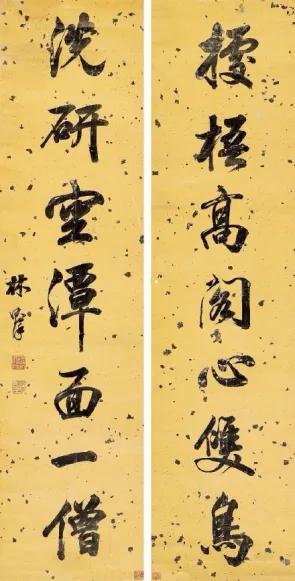 據梧高閣心雙鳥
洗研空潭面一僧
林